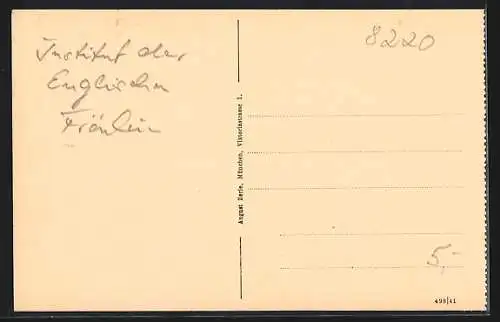 Institut der
Englischen
Fräulein
8220
August Zerle, München, Viktoriastrasse 1.
5,-
498/41